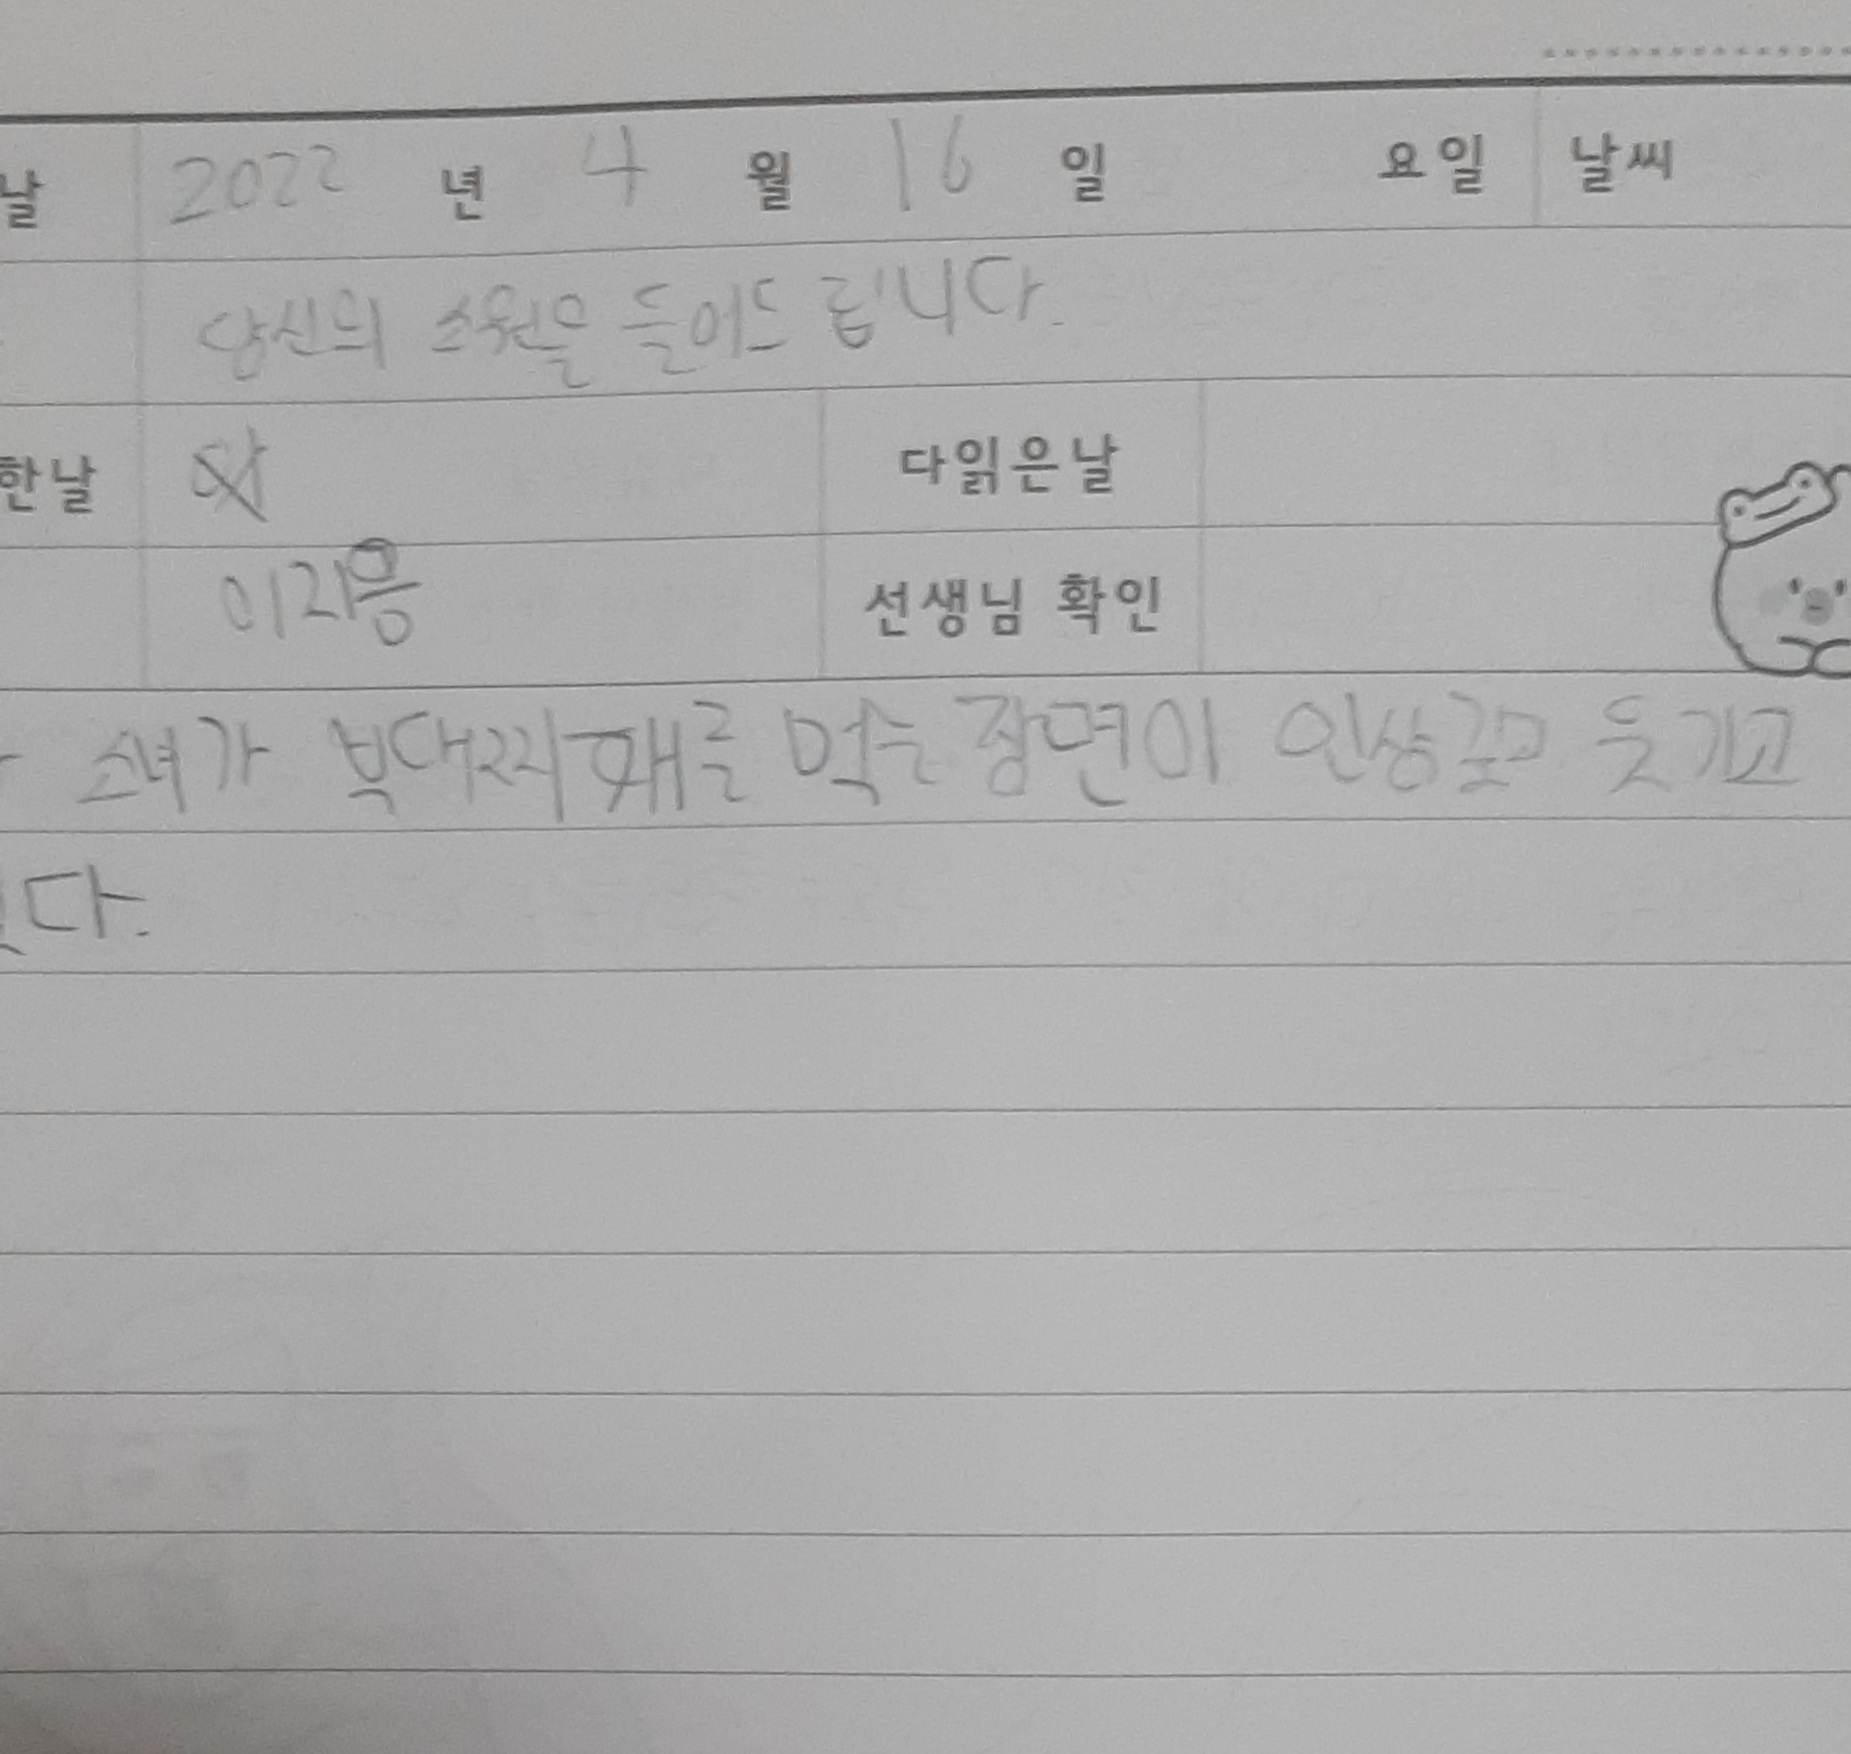 날 2022 년 4 월 16 일 요일 날씨
당신의 소원을 들어드립니다.
한날 다읽은날
이지용 선생님 확인
소녀가 부대찌개를 먹는 장면이 인상깊고 웃기고
다.